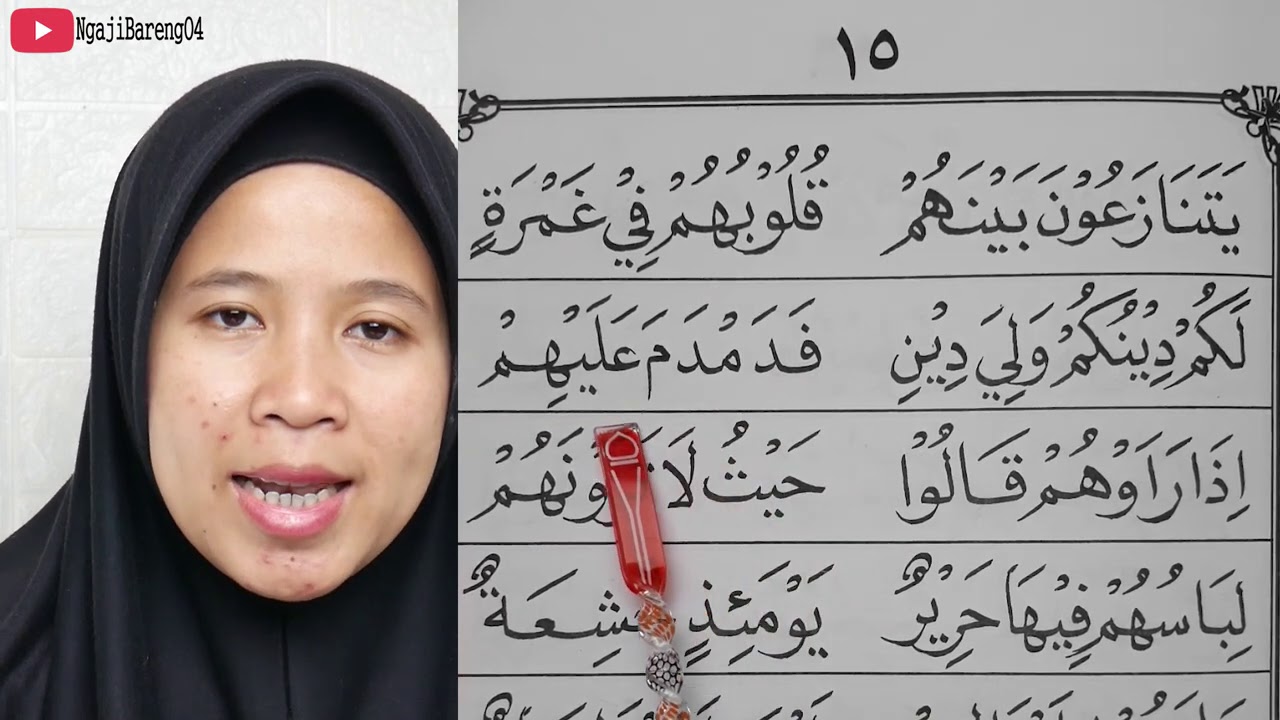 NgajiBareng04
١٥
يَتَنَازَعُوْنَ بَيْنَهُمْ قُلُوْبُهُمْ فِيْ غَمْرَةٍ
لَكُمْ دِيْنُكُمْ وَلِيَ دِيْنِ فَدَمْدَمَ عَلَيْهِمْ
اِذَا رَاَوْهُمْ قَالُوْا حَيْثُ لَا
لِبَاسُهُمْ فِيْهَا حَرِيْرٌ يَوْمَئِذٍ